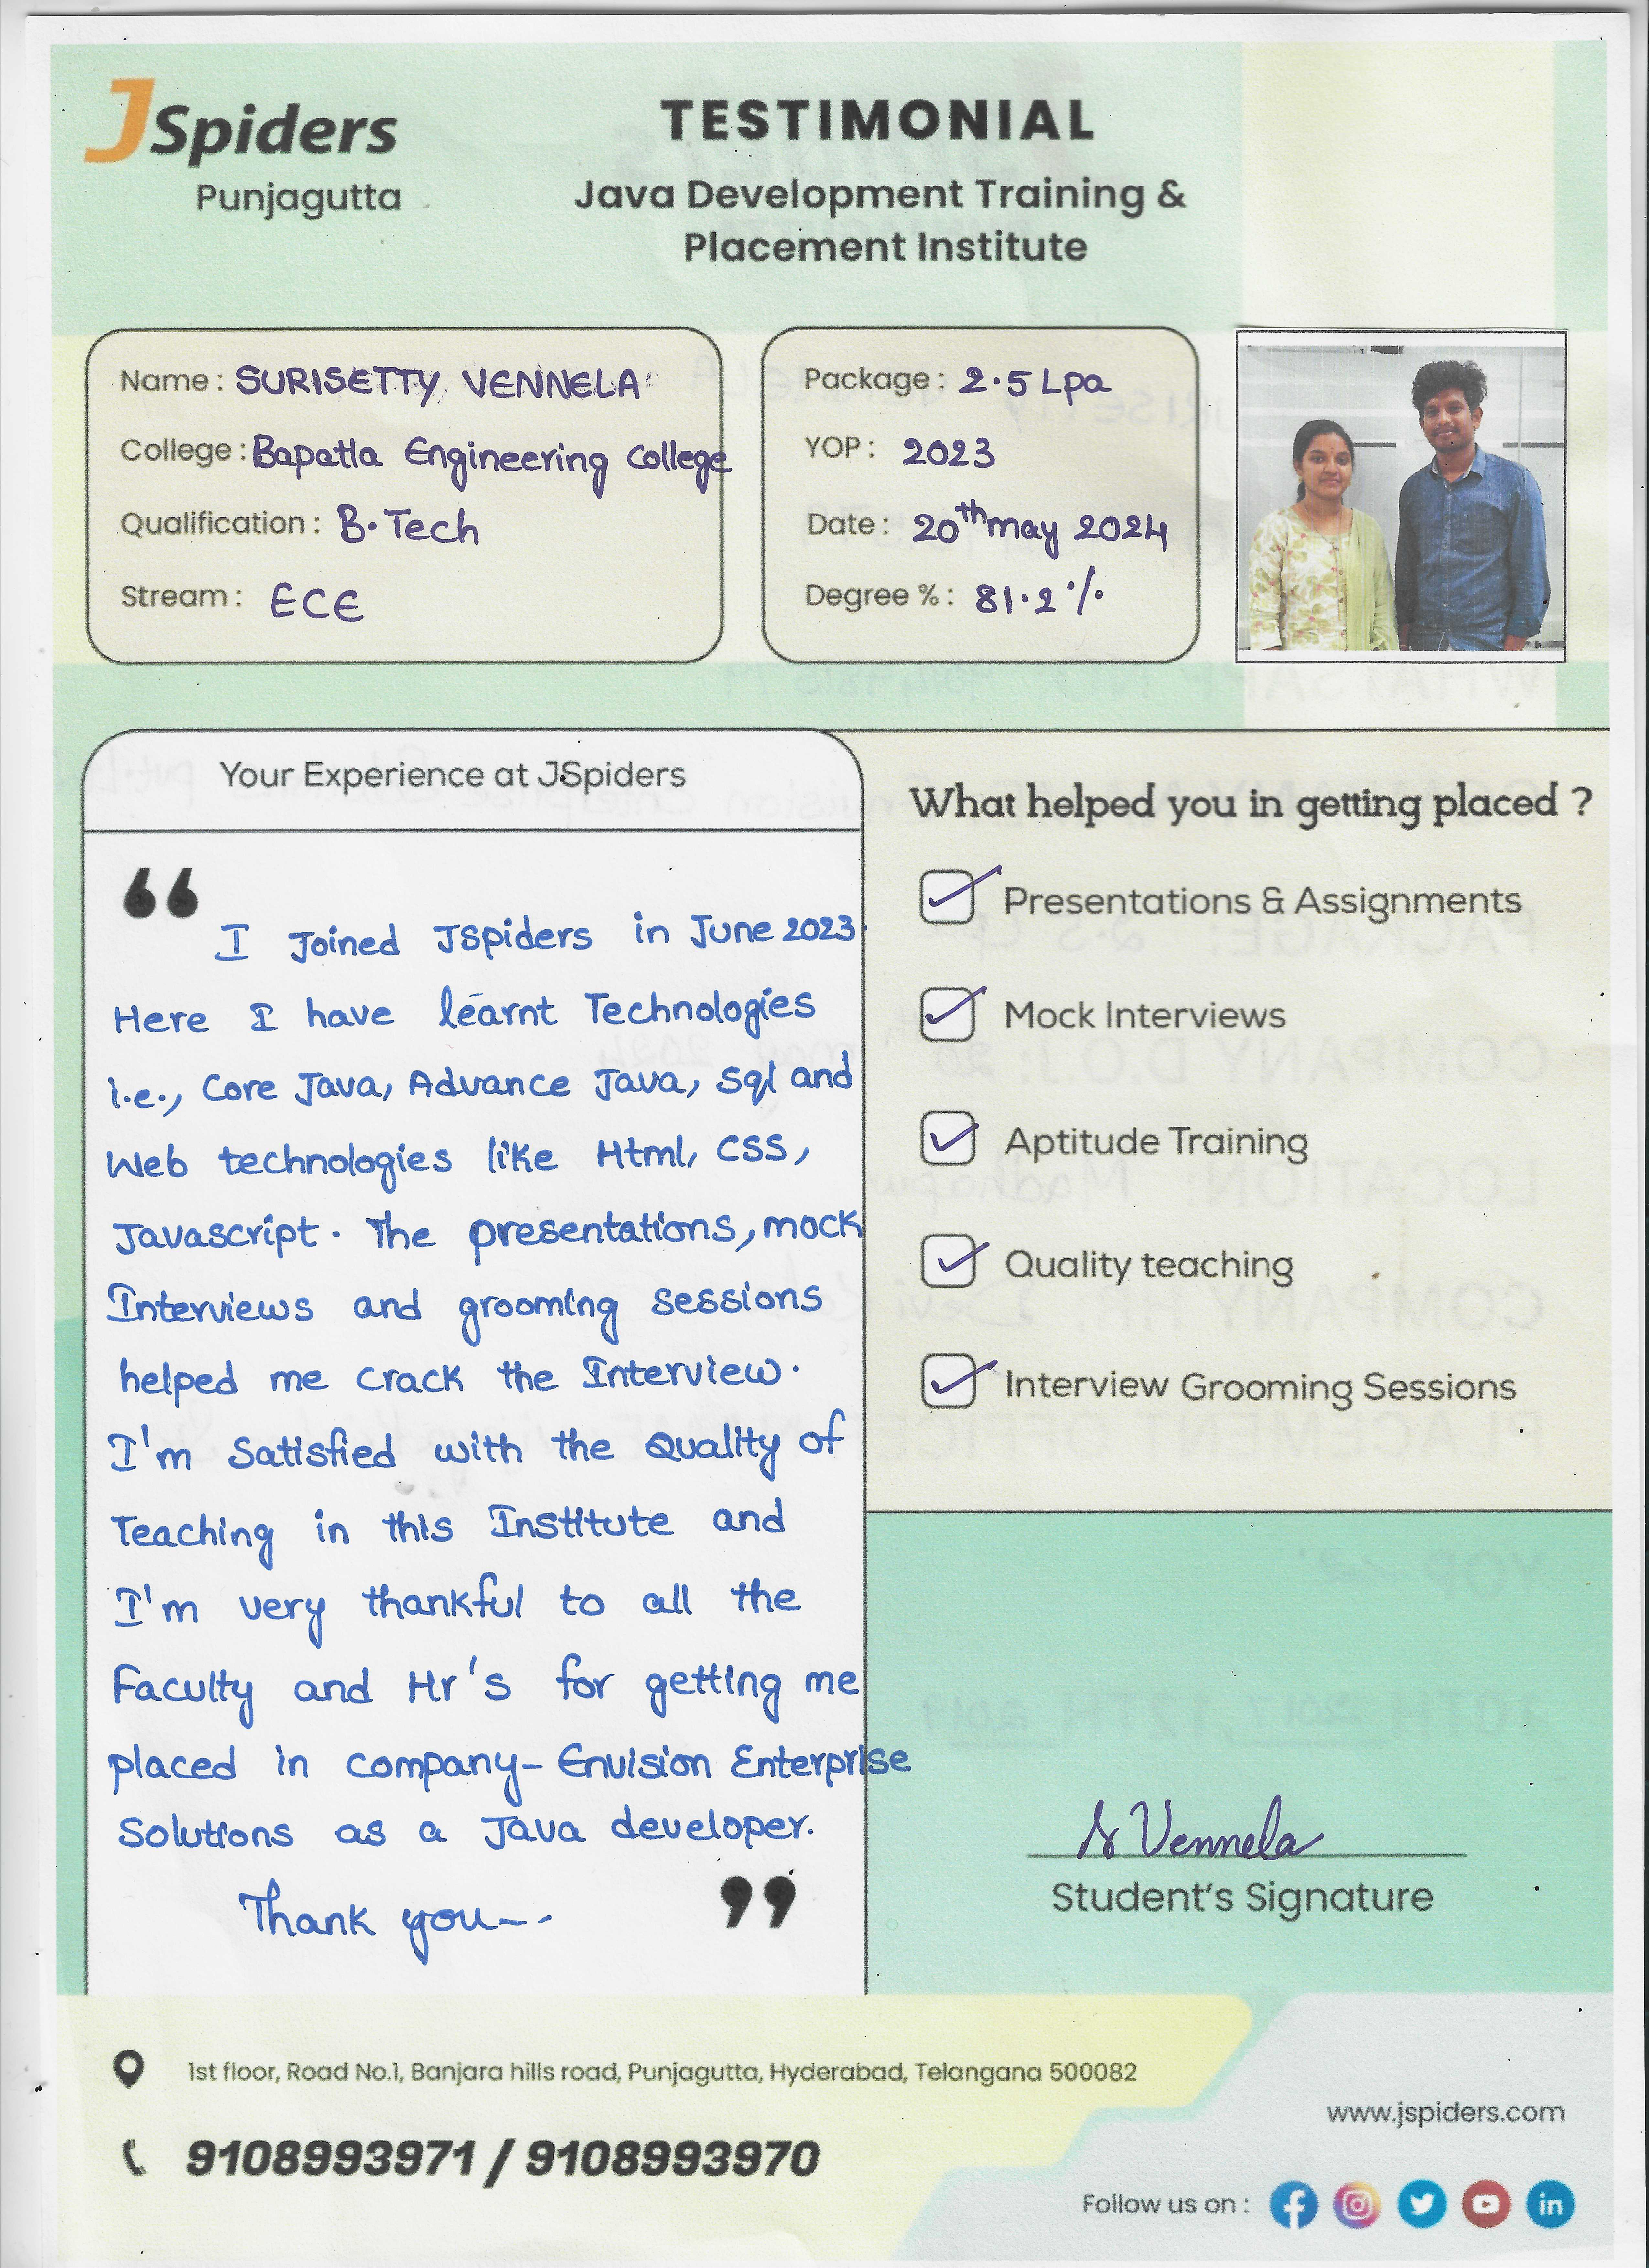 JSpiders
Punjagutta
TESTIMONIAL
Java Development Training &
Placement Institute
Name : SURISETTY VENNELA
College : Bapatla Engineering College
Qualification : B.Tech
Stream : ECE
Package : 2.5 Lpa
YOP : 2023
Date : 20th may 2024
Degree % : 81.2%
Your Experience at JSpiders
“ I Joined JSpiders in June 2023.
Here I have learnt Technologies
i.e., Core Java, Advance Java, Sql and
Web technologies like Html, CSS,
Javascript. The presentations, mock
Interviews and grooming sessions
helped me crack the Interview.
I'm Satisfied with the Quality of
Teaching in this Institute and
I'm very thankful to all the
Faculty and Hr's for getting me
placed in company- Envision Enterprise
Solutions as a Java developer.
Thank you-- ”
What helped you in getting placed ?
Presentations & Assignments
Mock Interviews
Aptitude Training
Quality teaching
Interview Grooming Sessions
S Vennela
Student's Signature
1st floor, Road No.1, Banjara hills road, Punjagutta, Hyderabad, Telangana 500082
9108993971 / 9108993970
www.jspiders.com
Follow us on :